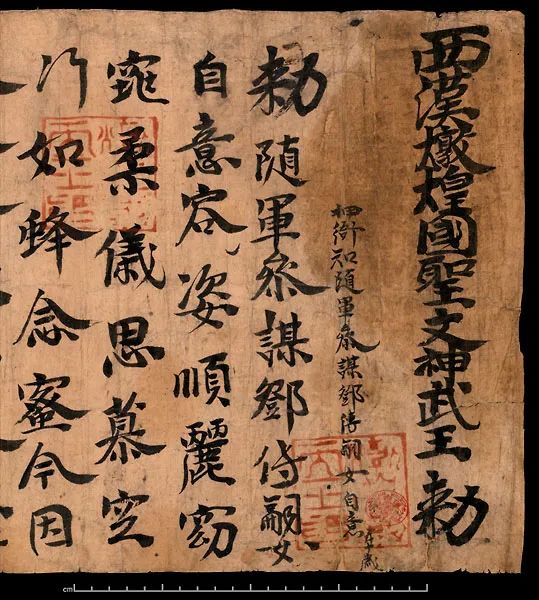 西漢燉煌國聖文神武王勑
押衙知隨軍叅謀鄧傳嗣女自意
勑隨軍叅謀鄧傳嗣女
自意容姿順麗窈
窕柔儀思慕空
行如蜂念蜜今因
cm